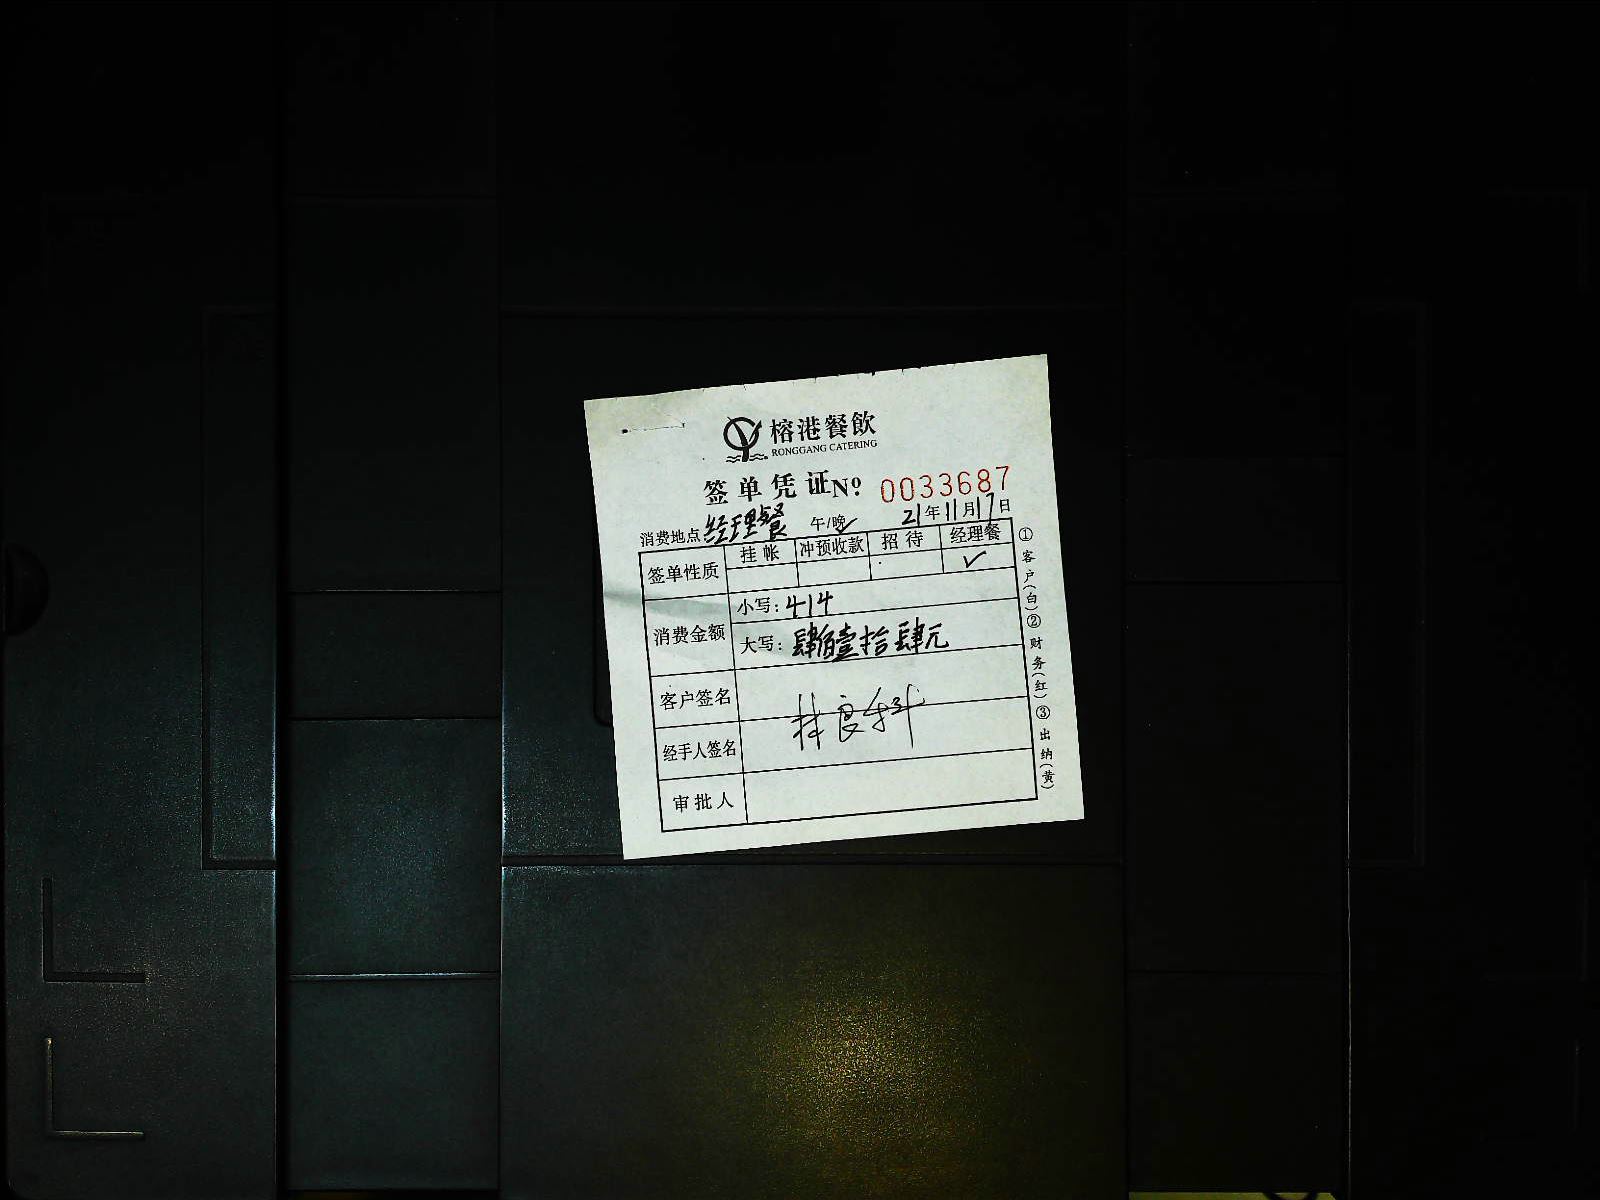 榕港餐飲
RONGGANG CATERING
签单凭证 No 0033687
消费地点 经理餐 午/晚✓ 21年11月17日
签单性质 挂帐 冲预收款 招待 经理餐
✓
消费金额 小写：414
大写：肆佰壹拾肆元
客户签名
经手人签名
审批人
①客户(白)②财务(红)③出纳(黄)